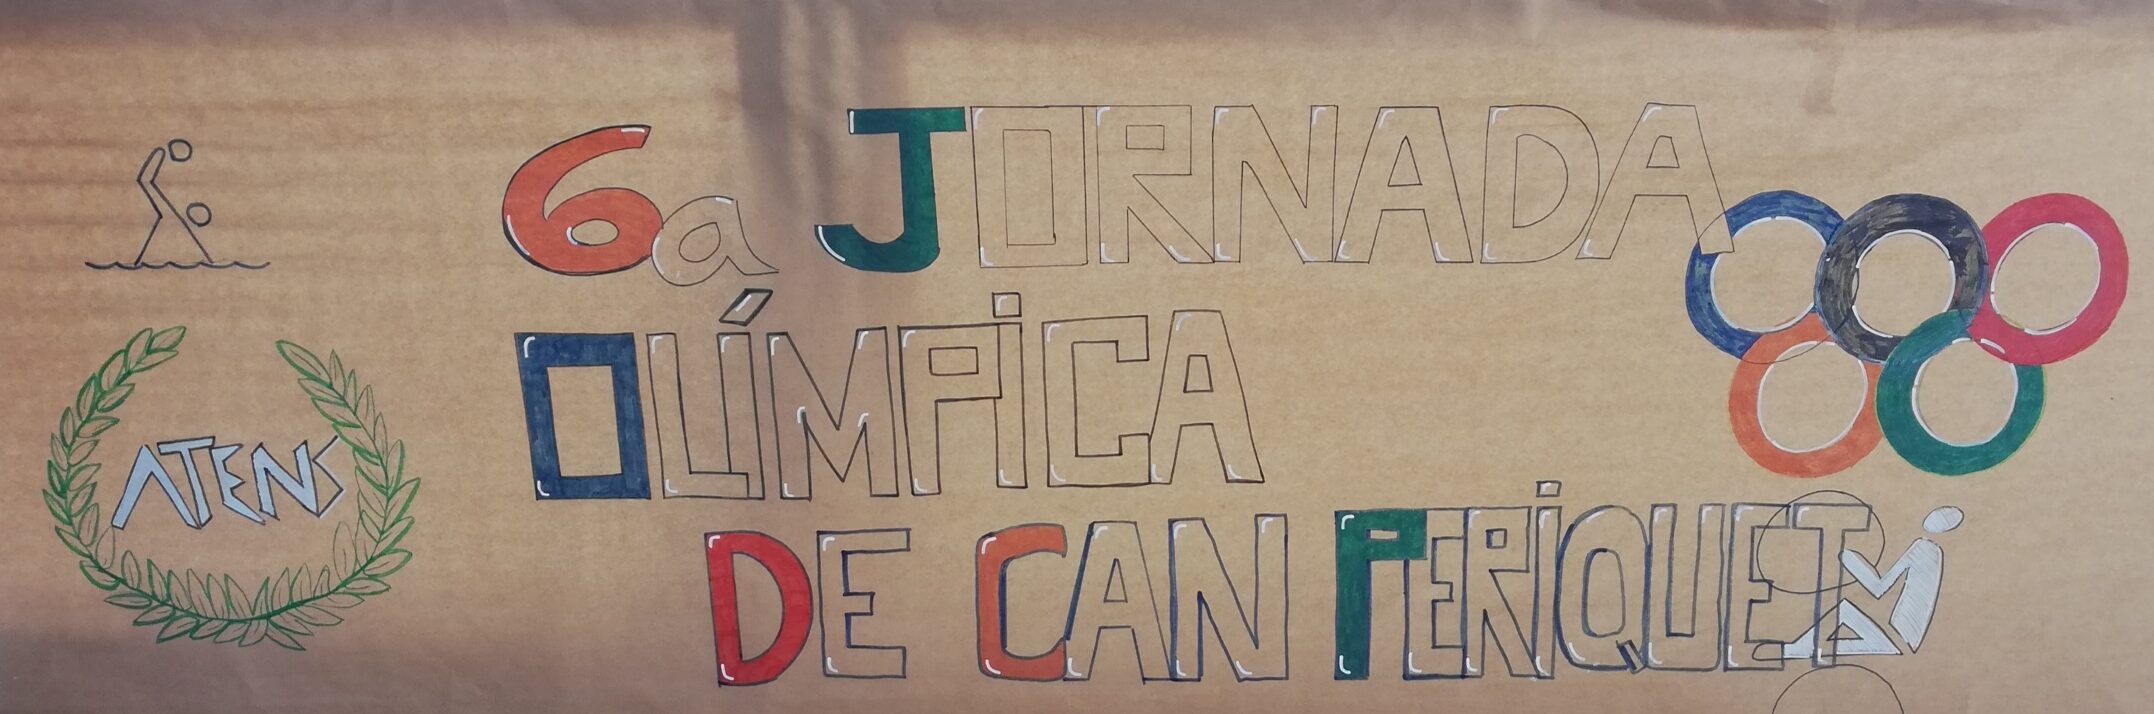 6a JORNADA
OLÍMPiCA
DE CAN PERiQUET
ATENS